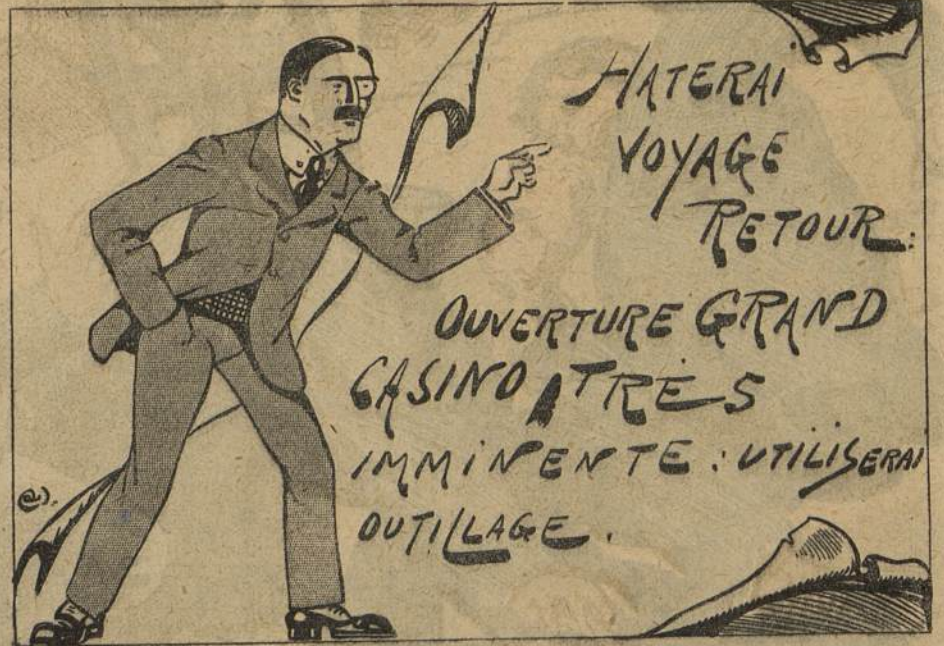 HATERAI
VOYAGE
RETOUR:
OUVERTURE GRAND
CASINO, TRÈS
IMMINENTE: UTILISERAI
OUTILLAGE.